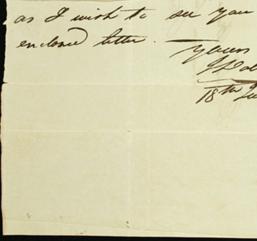 as I wish to see you
enclosed letter. —
Yours
18th